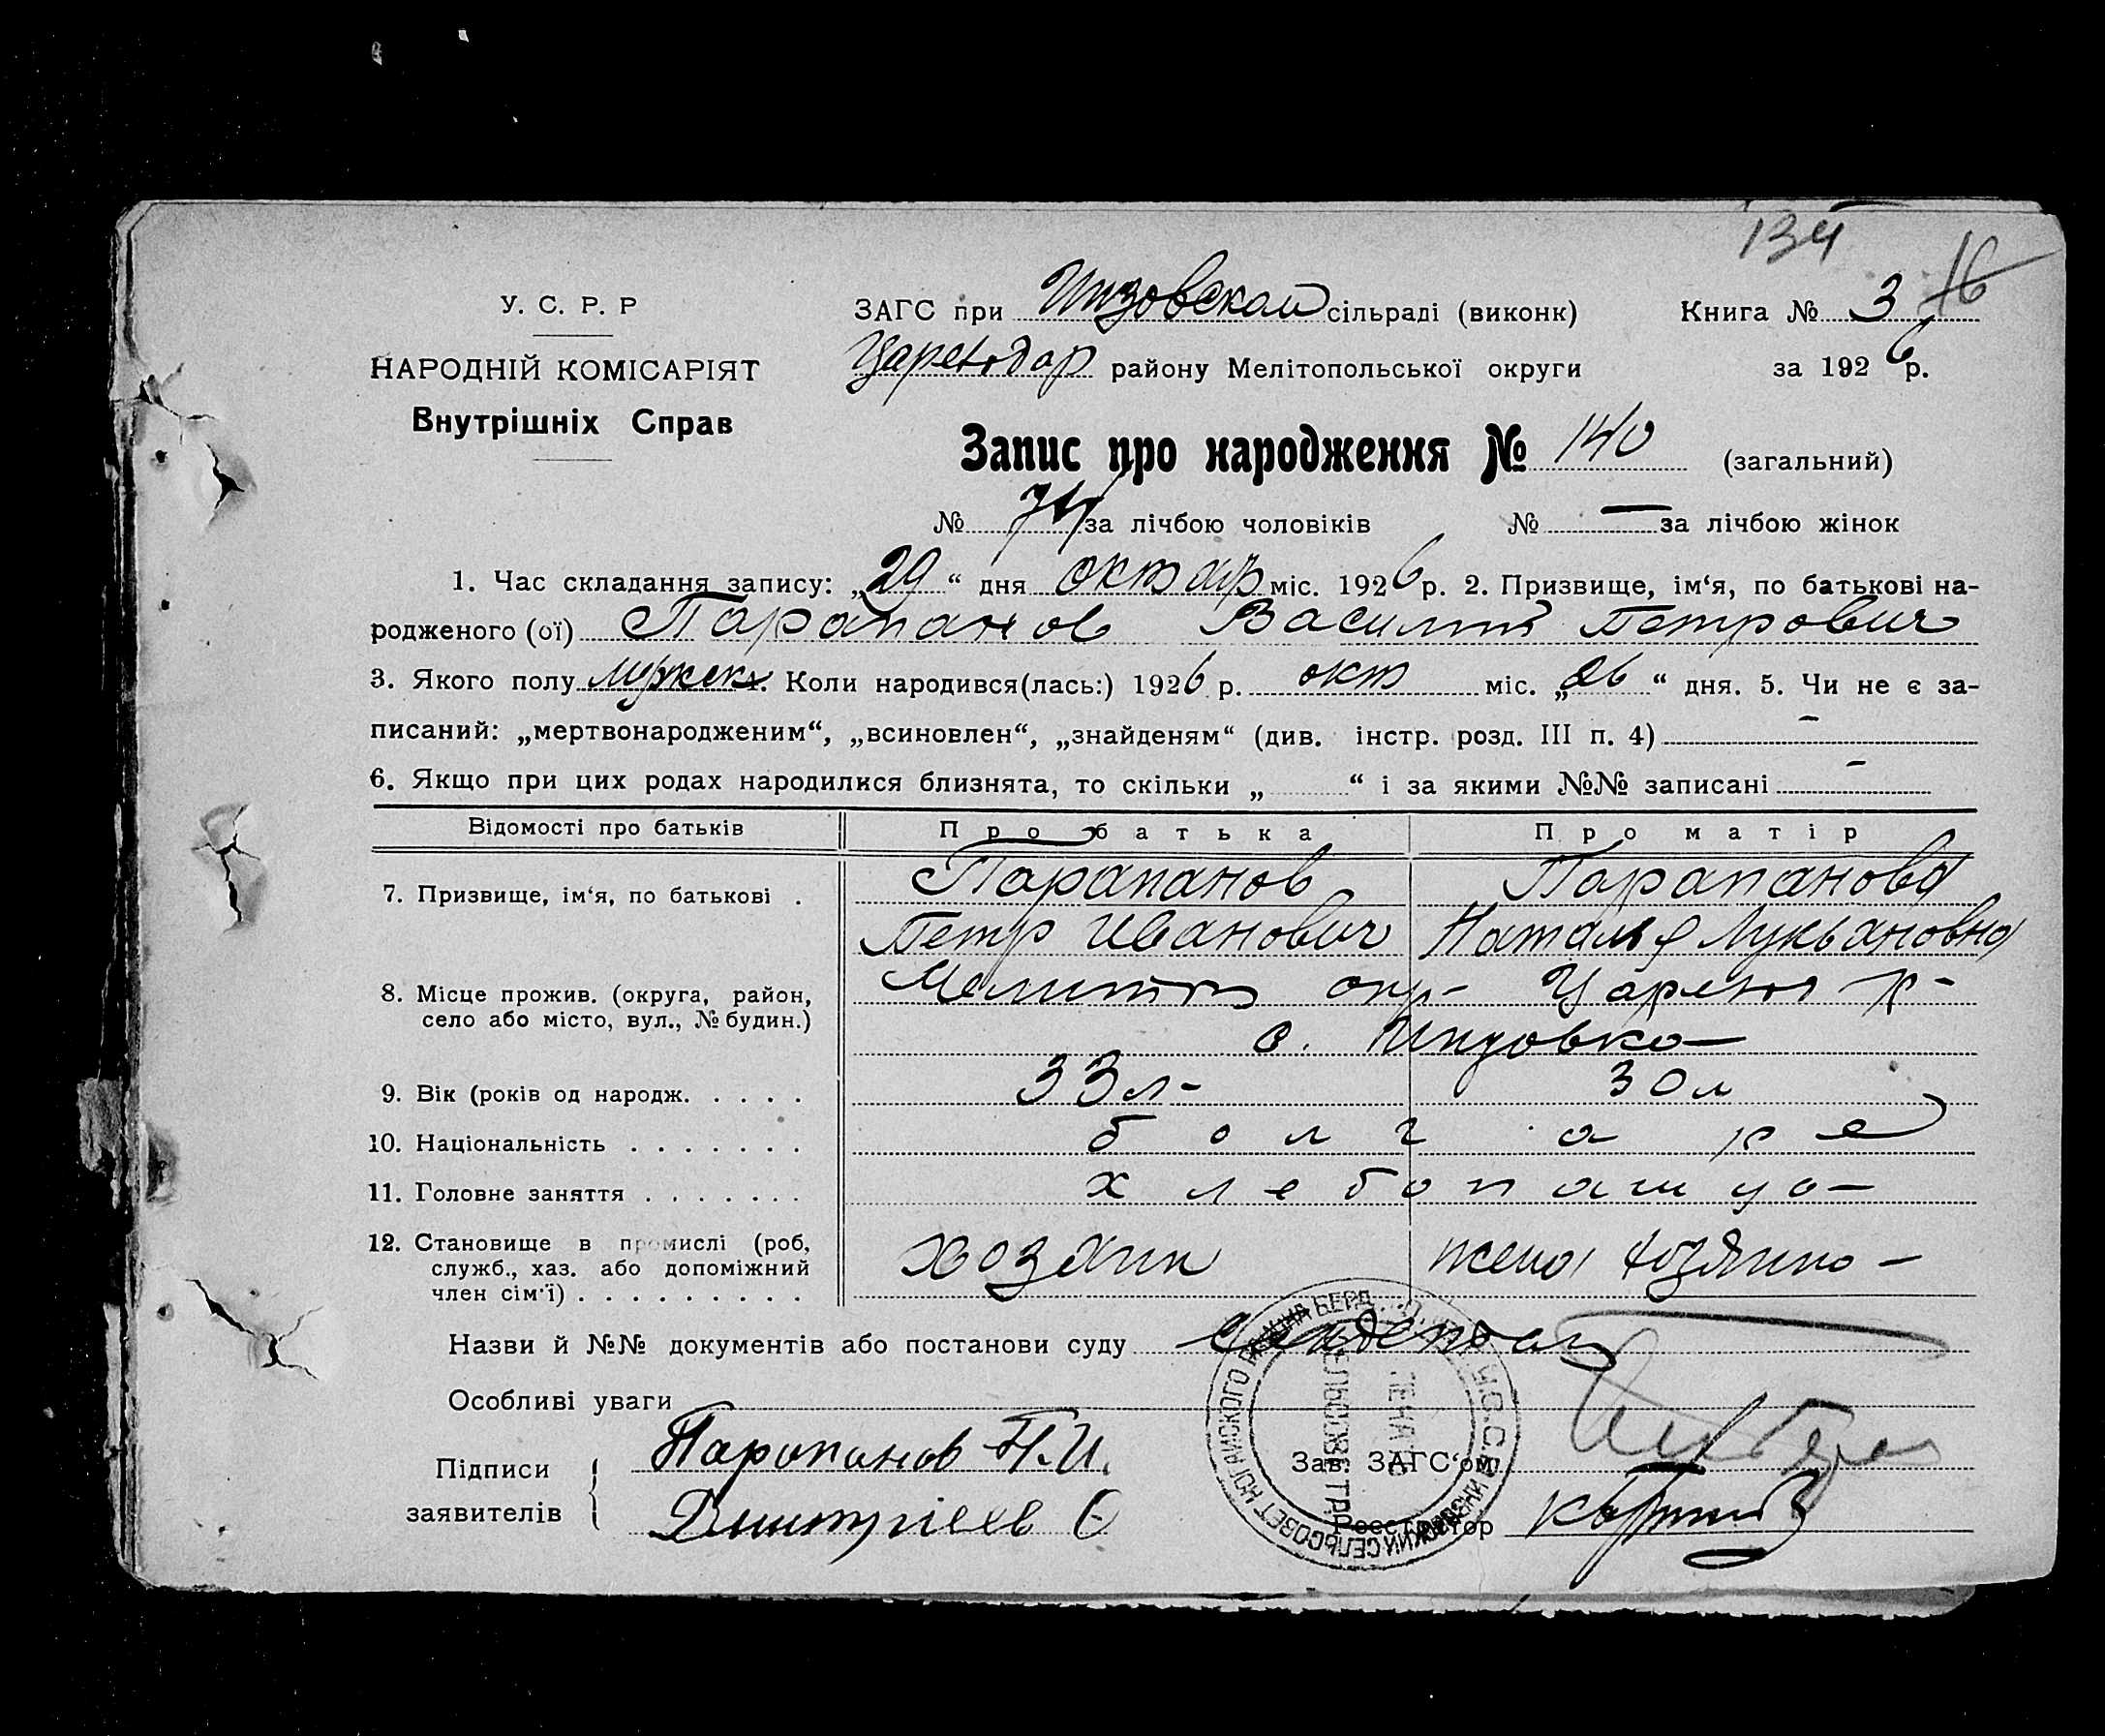 134
16
У. С. Р. Р
ЗАГС при Инзовском сільраді (виконк) Книга № 3
НАРОДНІЙ КОМІСАРІЯТ
району Мелітопольської округи за 1926 р.
Внутрішніх Справ
Запис про народження № 140 (загальний)
№ 74 за лічбою чоловіків № — за лічбою жінок
1. Час складання запису: „29“ дня октяб міс. 1926 р. 2. Призвище, ім‘я, по батькові на-
родженого (ої) Парапанов Василий Петрович
3. Якого полу мужск 4. Коли народився(лась:) 1926 р. окт міс. „26“ дня. 5. Чи не є за-
писаний: „мертвонародженим“, „всиновлен“, „знайденям“ (див. інстр. розд. III п. 4) -
6. Якщо при цих родах народилися близнята, то скільки „ “ і за якими №№ записані -
Відомості про батьків Про батька Про матір
7. Призвище, ім‘я, по батькові . Парапанов Парапанова
Петр Иванович Наталья Лукьановна
8. Місце прожив. (округа, район, село або місто, вул., № будин.) Мелитоп окр- р-
с. Инзовка
9. Вік (років од народж. . . . . 33 л- 30 л
10. Національність . . . . . . . болгаре
11. Головне заняття . . . . . . . хлебопашцо-
12. Становище в промислі (роб, хозяин жена хозяина -
служб., хаз. або допоміжний
член сім‘ї) . . . . . . . . .
Назви й №№ документів або постанови суду
Особливі уваги
Підписи Парапанов П. И. Зав. ЗАГС‘ом
заявителів Дмитриев Реестратор